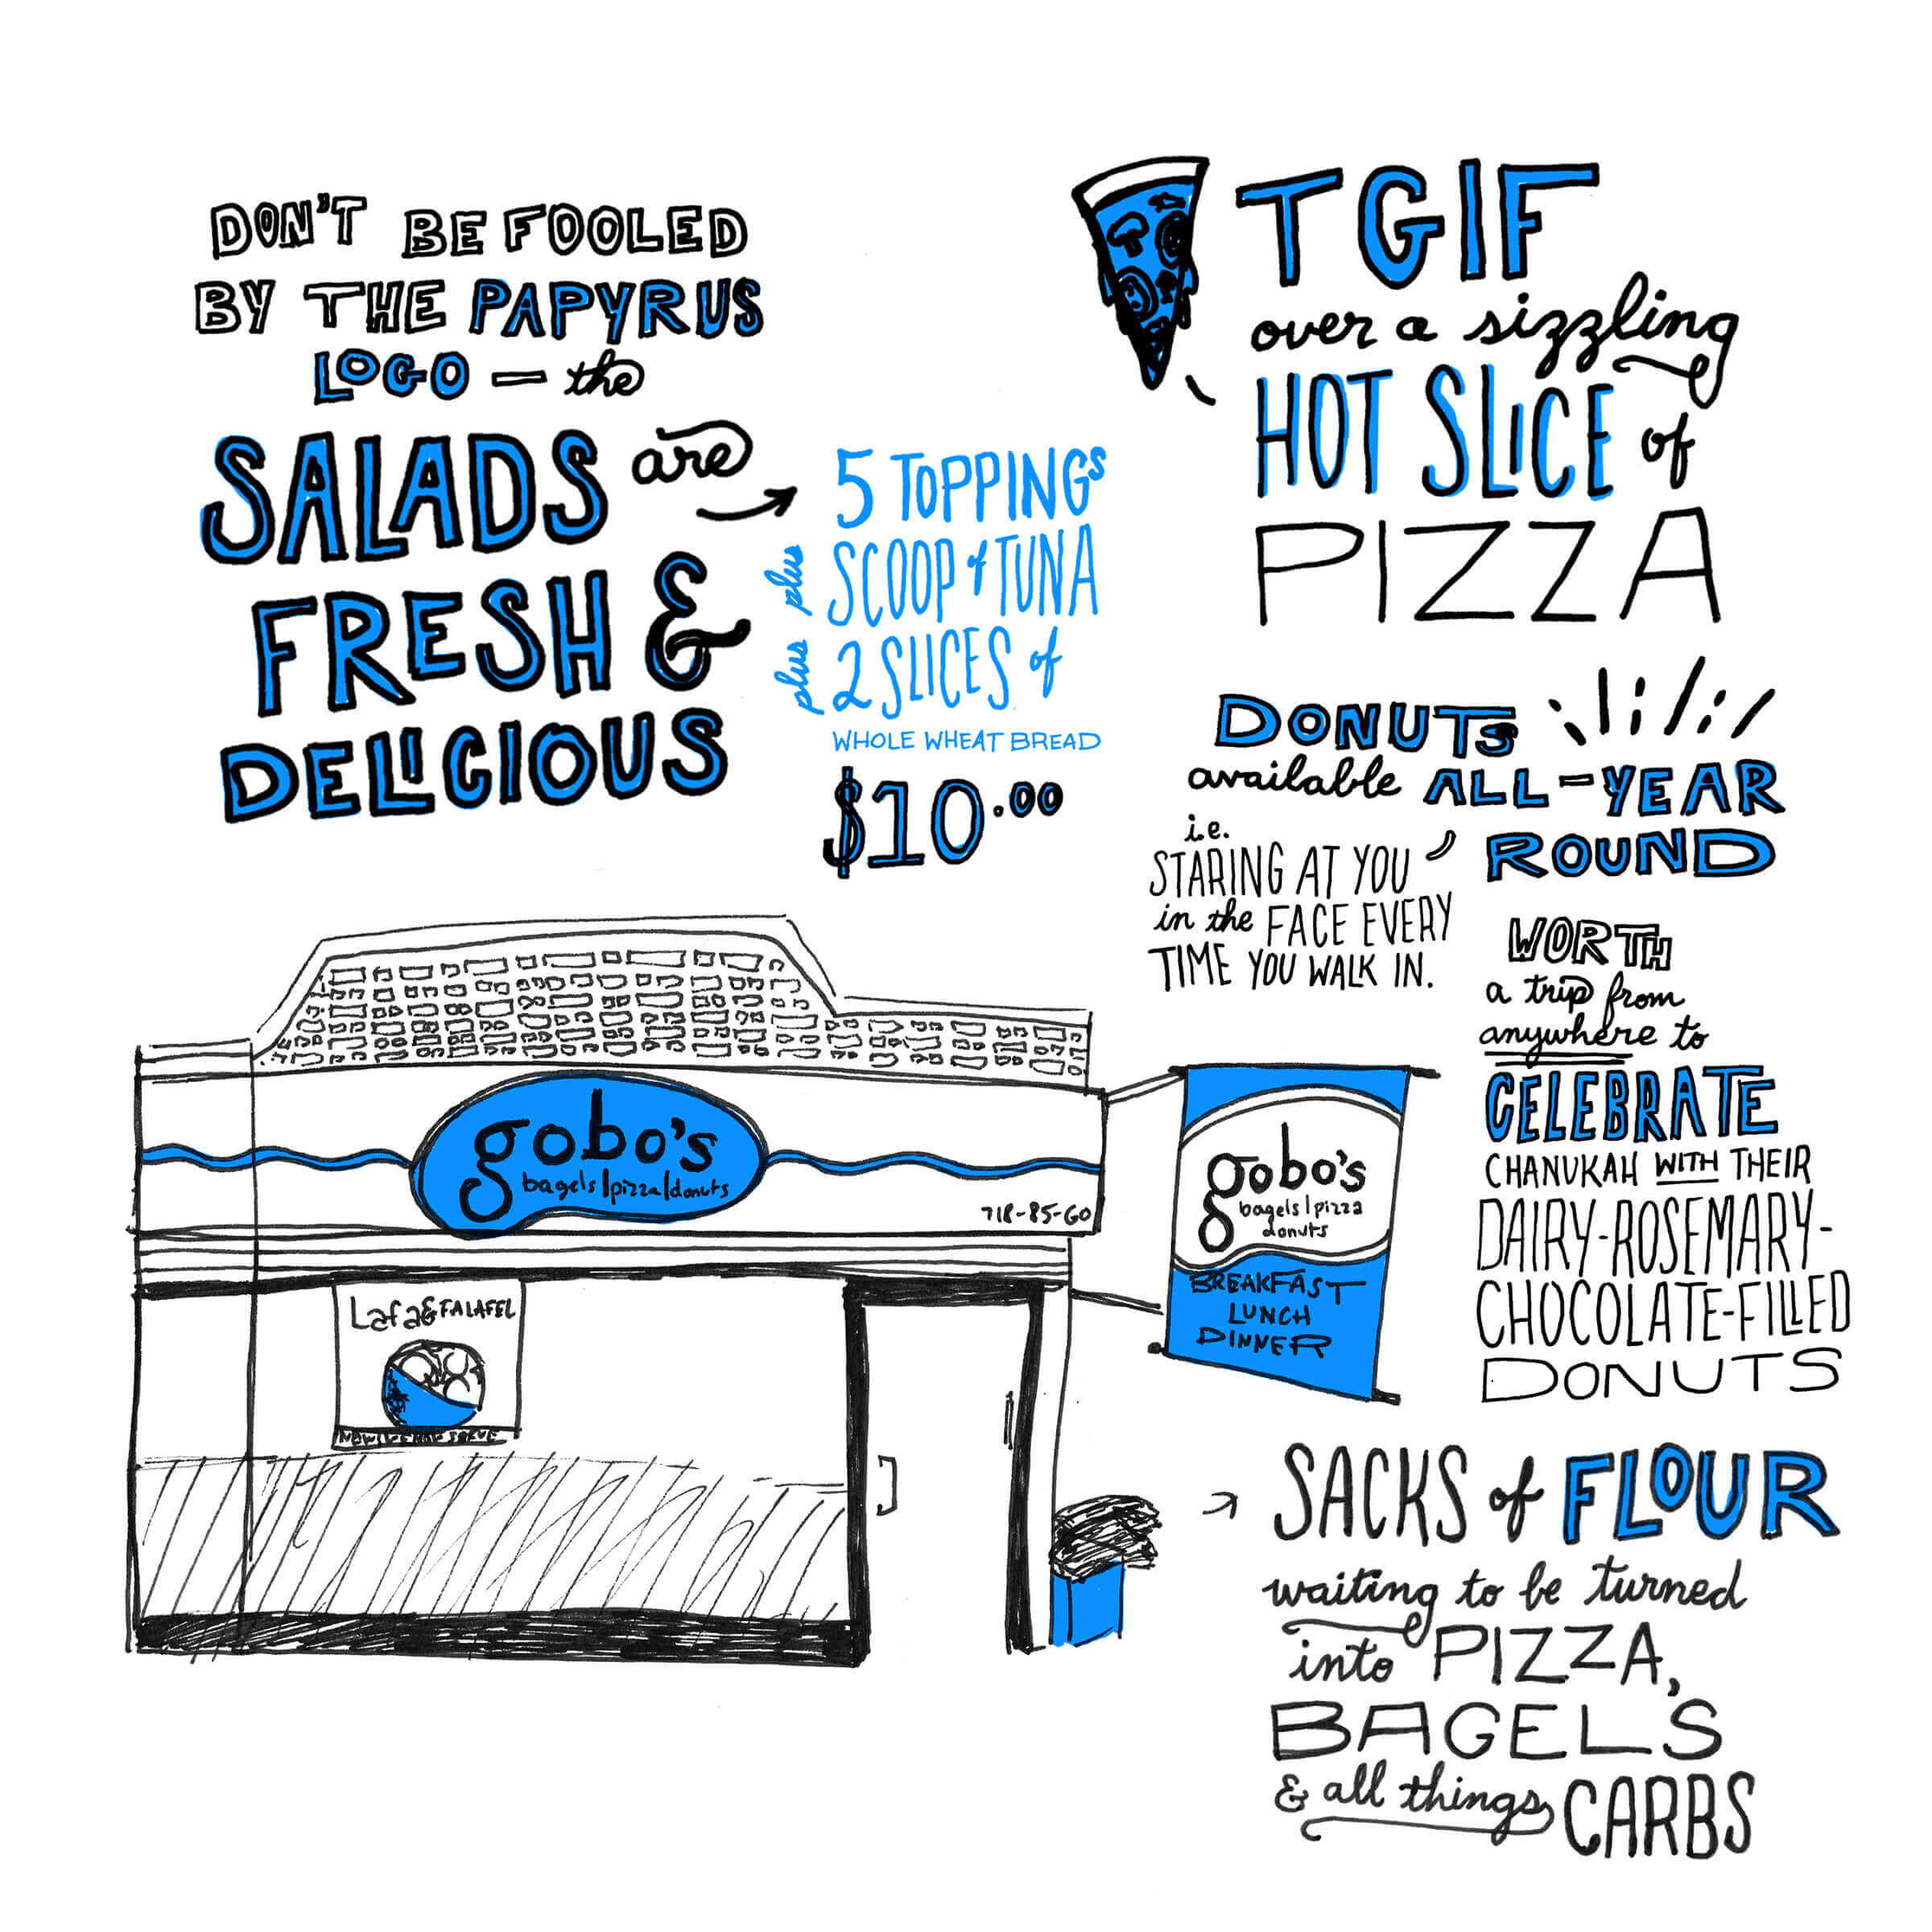 DON'T BE FOOLED
BY THE PAPYRUS
LOGO — the
SALADS are
FRESH &
DELICIOUS
5 TOPPINGS
plus SCOOP of TUNA
plus 2 SLICES of
WHOLE WHEAT BREAD
$10.00
TGIF
over a sizzling
HOT SLICE of
PIZZA
DONUTS
available ALL-YEAR
ROUND
i.e.
STARING AT YOU
in the FACE EVERY
TIME YOU WALK IN.
WORTH
a trip from
anywhere to
CELEBRATE
CHANUKAH WITH THEIR
DAIRY-ROSEMARY-
CHOCOLATE-FILLED
DONUTS
gobo's
bagels|pizza|donuts
718-85-GO
Lafa & FALAFEL
gobo's
bagels|pizza
donuts
BREAKFAST
LUNCH
DINNER
SACKS of FLOUR
waiting to be turned
into PIZZA,
BAGEL'S
& all things CARBS